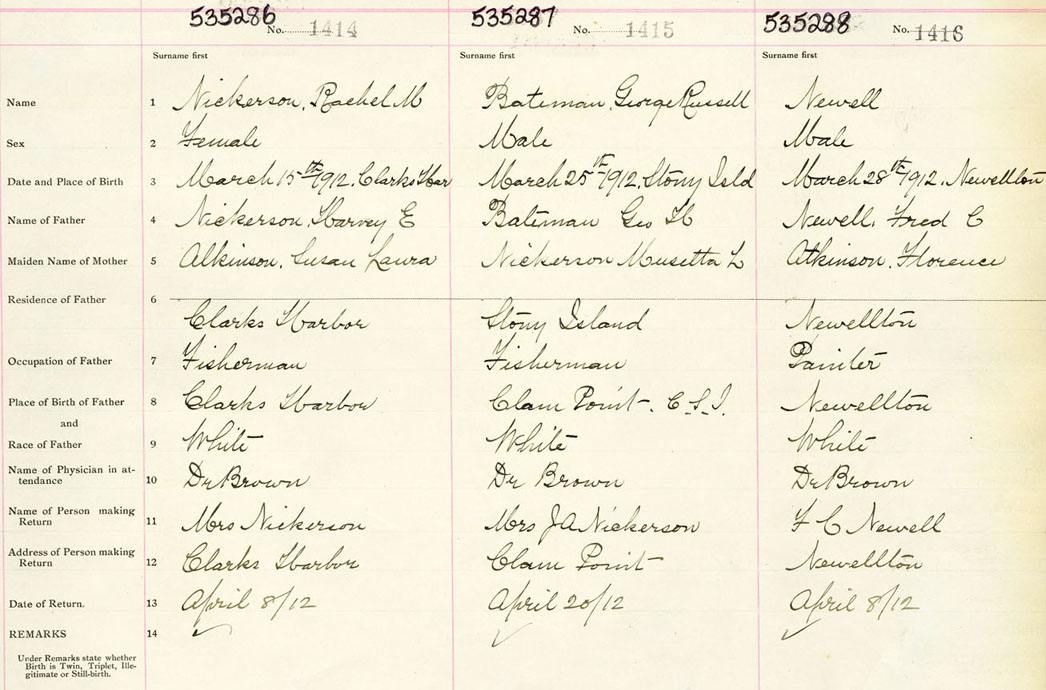 535286 No. 1414 535287 No. 1415 535288 No. 1416
Surname first Surname first Surname first
Name 1 Nickerson, Rachel M Bateman, George Russell Newell
Sex 2 Female Male Male
Date and Place of Birth 3 March 15th/1912. Clarks Har March 25th/1912. Stony Isld March 28th/1912. Newellton
Name of Father 4 Nickerson, Harvey E Bateman Geo H Newell, Fred C
Maiden Name of Mother 5 Atkinson, Susan Laura Nickerson Musetta L Atkinson, Florence
Residence of Father 6
Clarks Harbor Stony Island Newellton
Occupation of Father 7 Fisherman Fisherman Painter
Place of Birth of Father 8 Clarks Harbor Clam Point. C.S.I. Newellton
and
Race of Father 9 White White White
Name of Physician in at-
tendance 10 Dr Brown Dr Brown Dr Brown
Name of Person making
Return 11 Mrs Nickerson Mrs JA Nickerson F C Newell
Address of Person making
Return 12 Clarks Harbor Clam Point Newellton
Date of Return. 13 April 8/12 April 20/12 April 8/12
REMARKS 14
Under Remarks state whether
Birth is Twin, Triplet, Ille-
gitimate or Still-birth.